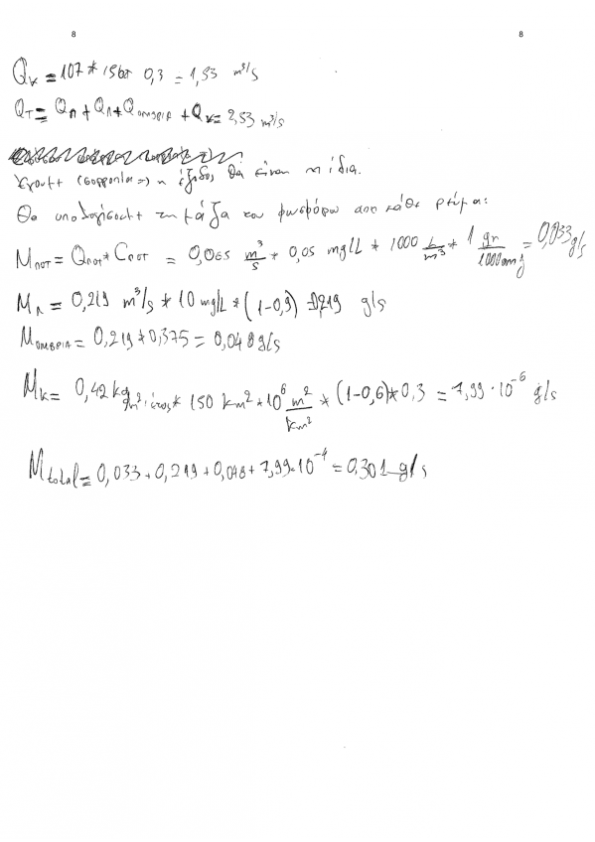 8 8
Qκ = 107 * 1568 0,3 = 1,53 m³/s
QT = QΠ + QΛ + Qομβρια + Qκ = 2,53 m³/s
Έχουμε ισορροπία => η έξοδος θα είναι η ίδια.
Θα υπολογίσουμε τη μάζα του φωσφόρου απο κάθε ρεύμα:
MΠΟΤ = QΠΟΤ * CΠΟΤ = 0,065 m³/s * 0,05 mg/L * 1000 L/m³ * 1 gr/1000 mg = 0,033 g/s
MΛ = 0,219 m³/s * 10 mg/L * (1-0,9) = 0,219 g/s
MΟΜΒΡΙΑ = 0,219 * 0,375 = 0,048 g/s
Mκ = 0,42 kg/m²·έτος * 150 km² * 10⁶ m²/km² * (1-0,6) * 0,3 = 7,99 · 10⁻⁶ g/s
Mtotal = 0,033 + 0,219 + 0,048 + 7,99 · 10⁻⁴ = 0,301 g/s